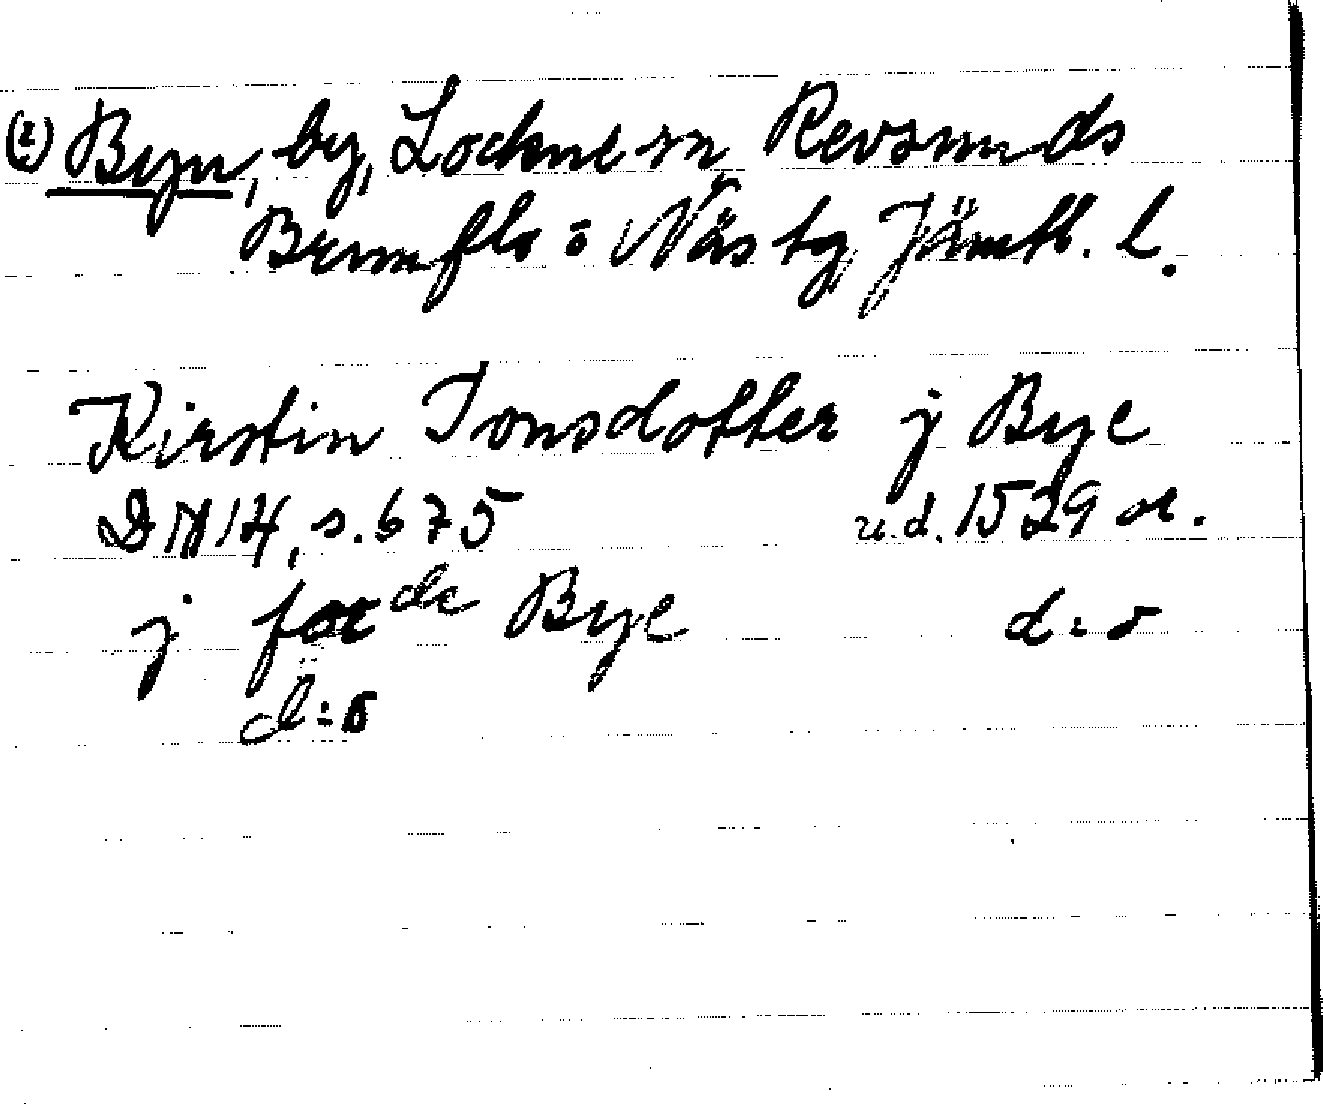 (2) Byn, by, Lockne sn, Revsunds
Brunflo o Näs tg, Jämtl. l.
Kirstin Jonsdotter j Bye
DN 14, s. 675 u.d. 1529 or.
j forde Bye d:o
d:o